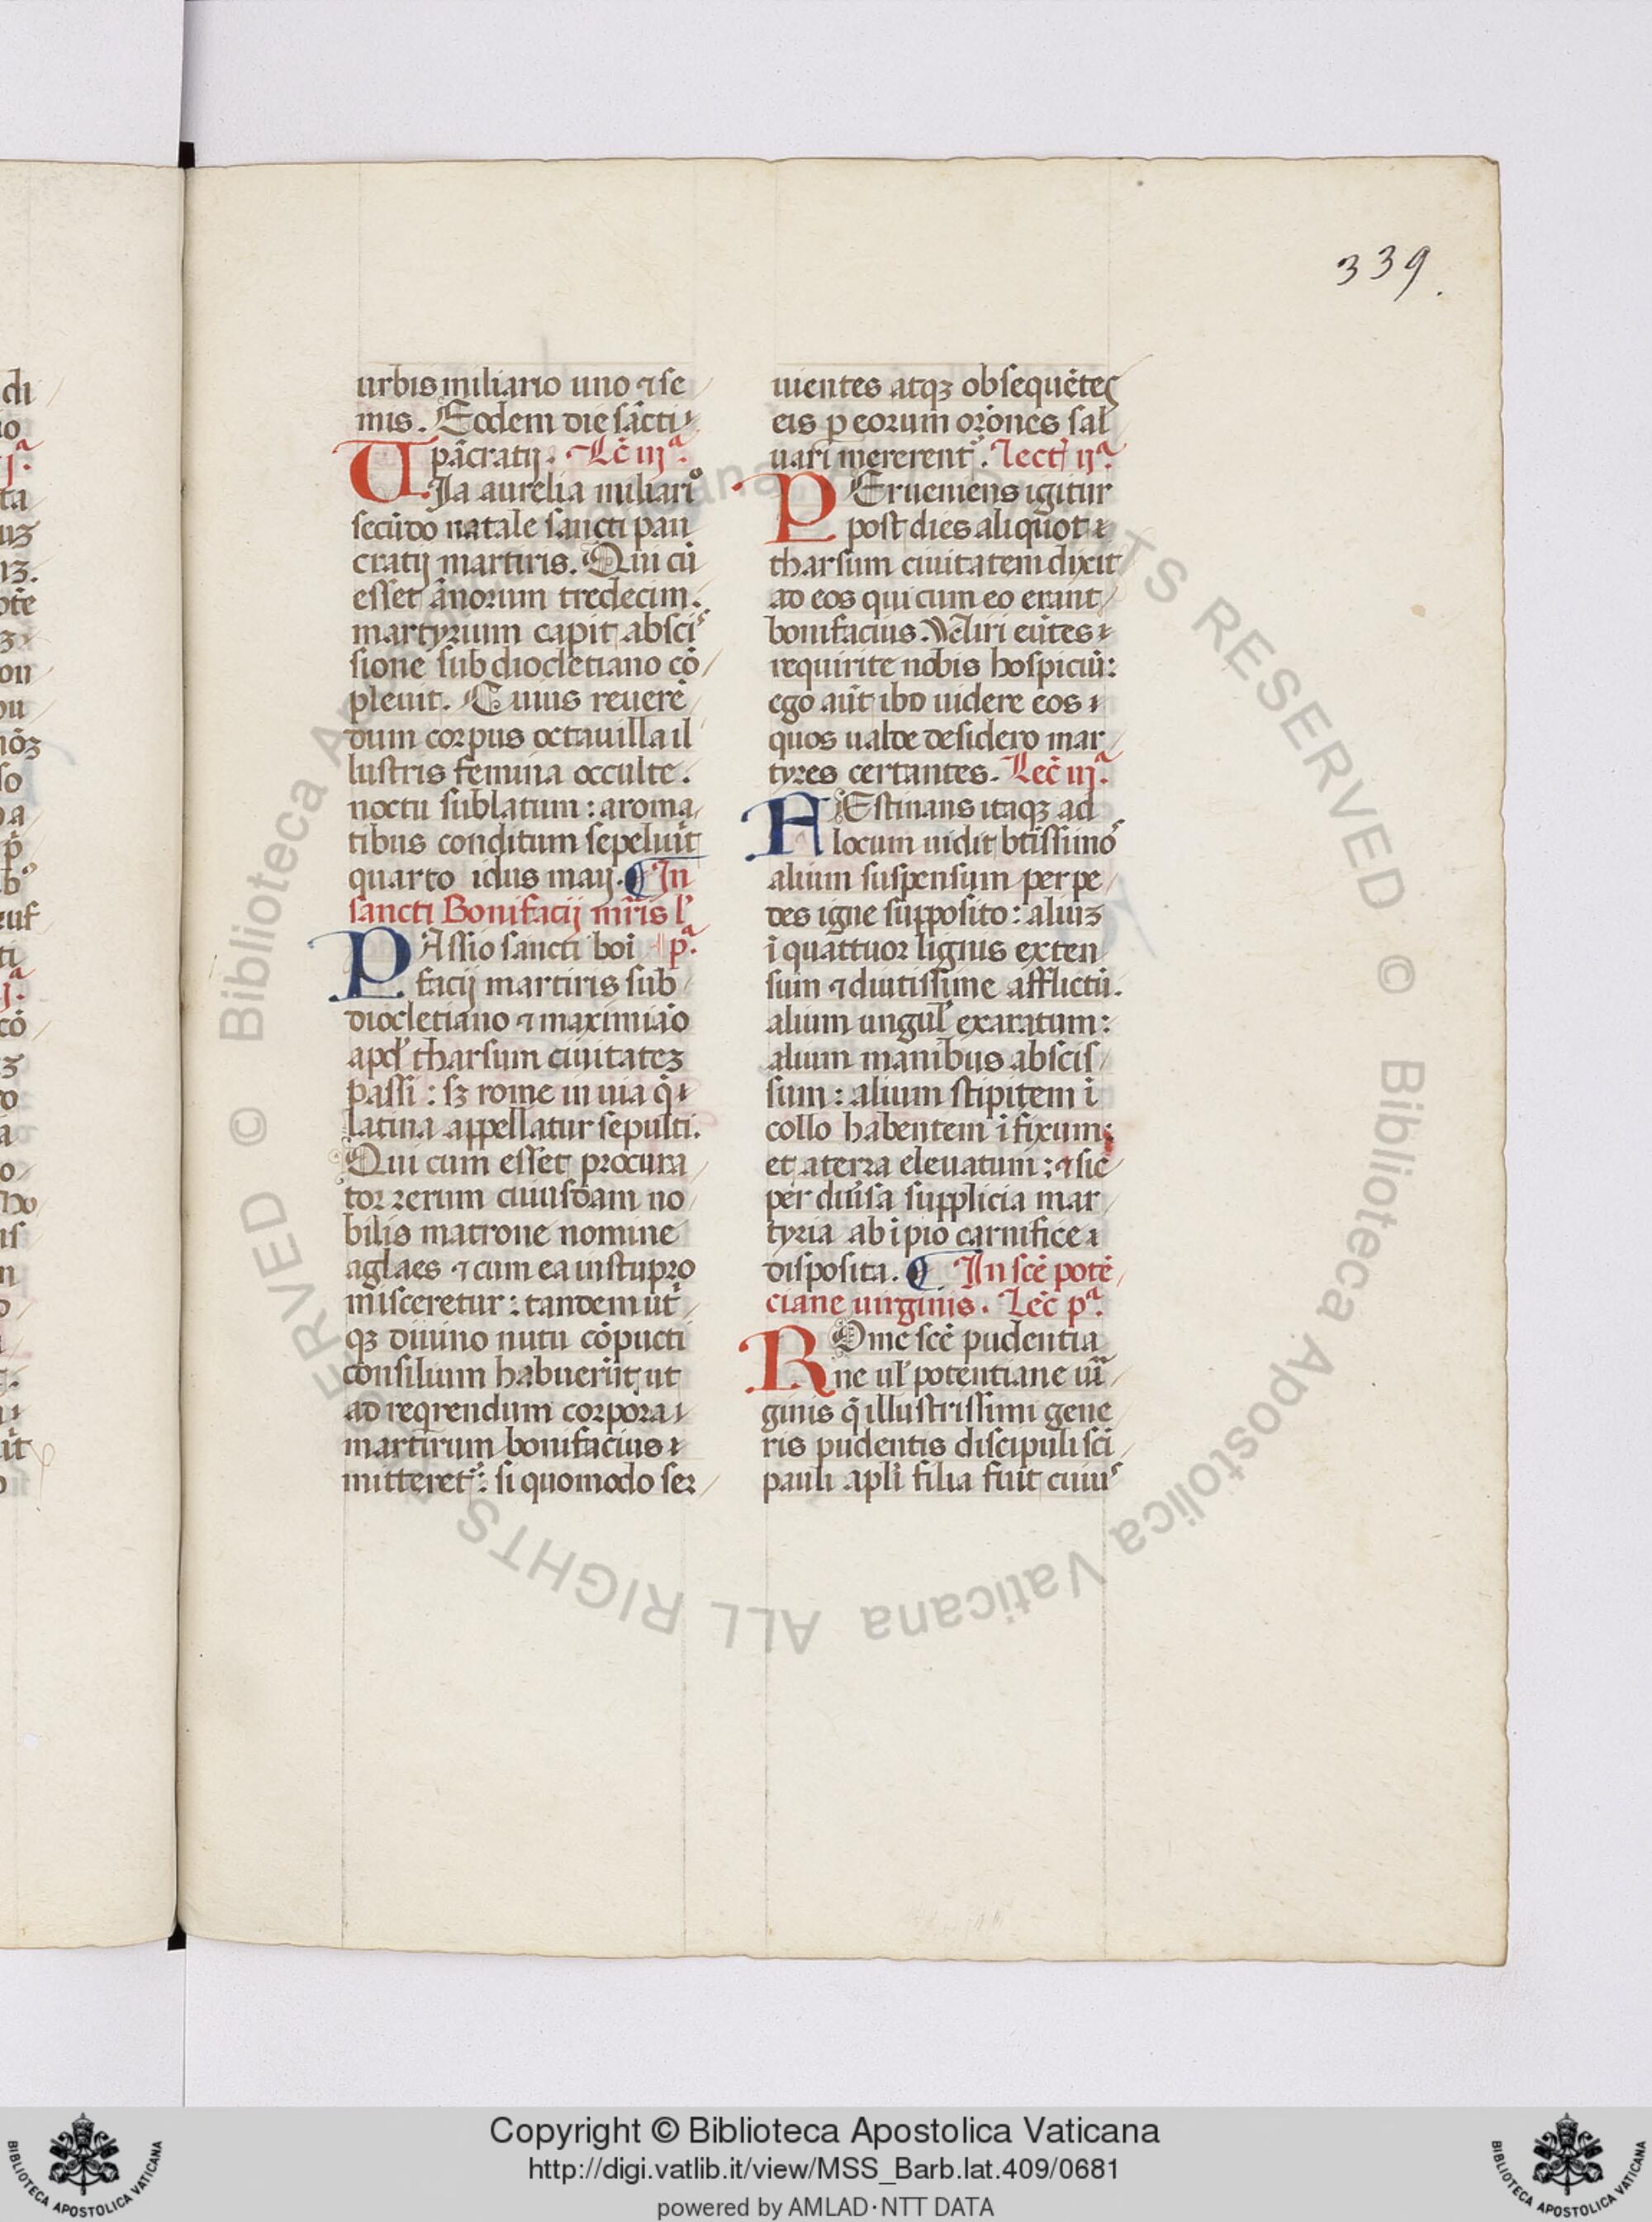 339.
urbis miliario uno ⁊ se
mis. Eodem die sãcti
pãcratij. Lc̃ iijª.
UIa aurelia miliarͦi
secũdo natale sancti pan
cratij martiris. Qui cũ
esset ãnorum tredecim.
martyrium capit absci
sione sub diocletiano cõ
pleuit. Cuius reuerẽ
dum corpus octauilla il
lustris femina occulte.
noctu sublatum: aroma
tibus conditum sepeliuit
quarto idus maij. ¶ In
sancti Bonifacij mr̃is l'
PAssio sancti boi pª.
facij martiris sub
diocletiano ⁊ maximião
apd' tharsum ciuitateʒ
passi: sʒ rome in uia q̃
latina appellatur sepulti.
Qui cum esset procura
tor rerum cuiusdam no
bilis matrone nomine
aglaes ⁊ cum ea in stupro
misceretur: tandem utͥ
qʒ diuino nutu cõpucti
consilium habuerũt ut
ad reqrendum corpora
martirum bonifacius
mitteret': si quomodo ser
uientes atqʒ obsequẽtes
eis ꝑ eorum orõnes sal
uari mererent'. Lect' ijª.
PErueniens igitur
post dies aliquot
tharsum ciuitatem dixit
ad eos qui cum eo erant
bonifacius. Uiri eũtes
requirite nobis hospiciũ:
ego aũt ibo uidere eos
quos ualde desidero mar
tyres certantes. Lec̃ iijª.
FEstinans itaqʒ ad
locum uidit btissimos
alium suspensum per pe
des igne supposito: aliuʒ
ĩ quattuor lignis exten
sum ⁊ diutissime afflictũ.
alium ungul' exaratum:
alium manibus abscis
sum: alium stipitem ĩ
collo habentem ĩfixum:
et a terra eleuatum: ⁊ sic
per diũsa supplicia mar
tyria ab ĩpio carnifice
disposita. ¶ In scẽ potẽ
ciane uirginis. Lec̃ pª.
ROme scẽ pudentia
ne ul' potentiane uir̃
ginis q̃ illustrissimi gene
ris pudentis discipuli sci
pauli apli filia fuit cuius
Copyright © Biblioteca Apostolica Vaticana
http://digi.vatlib.it/view/MSS_Barb.lat.409/0681
powered by AMLAD·NTT DATA